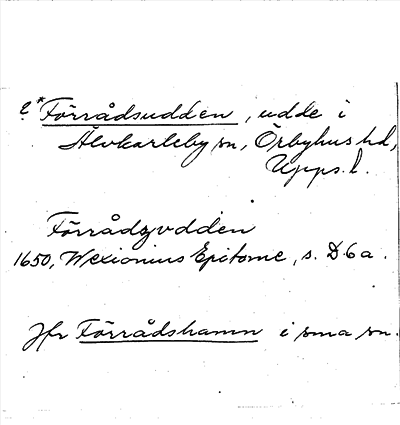 *Förrådsudden, udde i
Älvkarleby sn, Örbyhus hd,
Upps. l.
Förrådzvdden
1650, Wexionius Epitome, s. D 6 a.
Jfr Förrådshamn i sma sn.